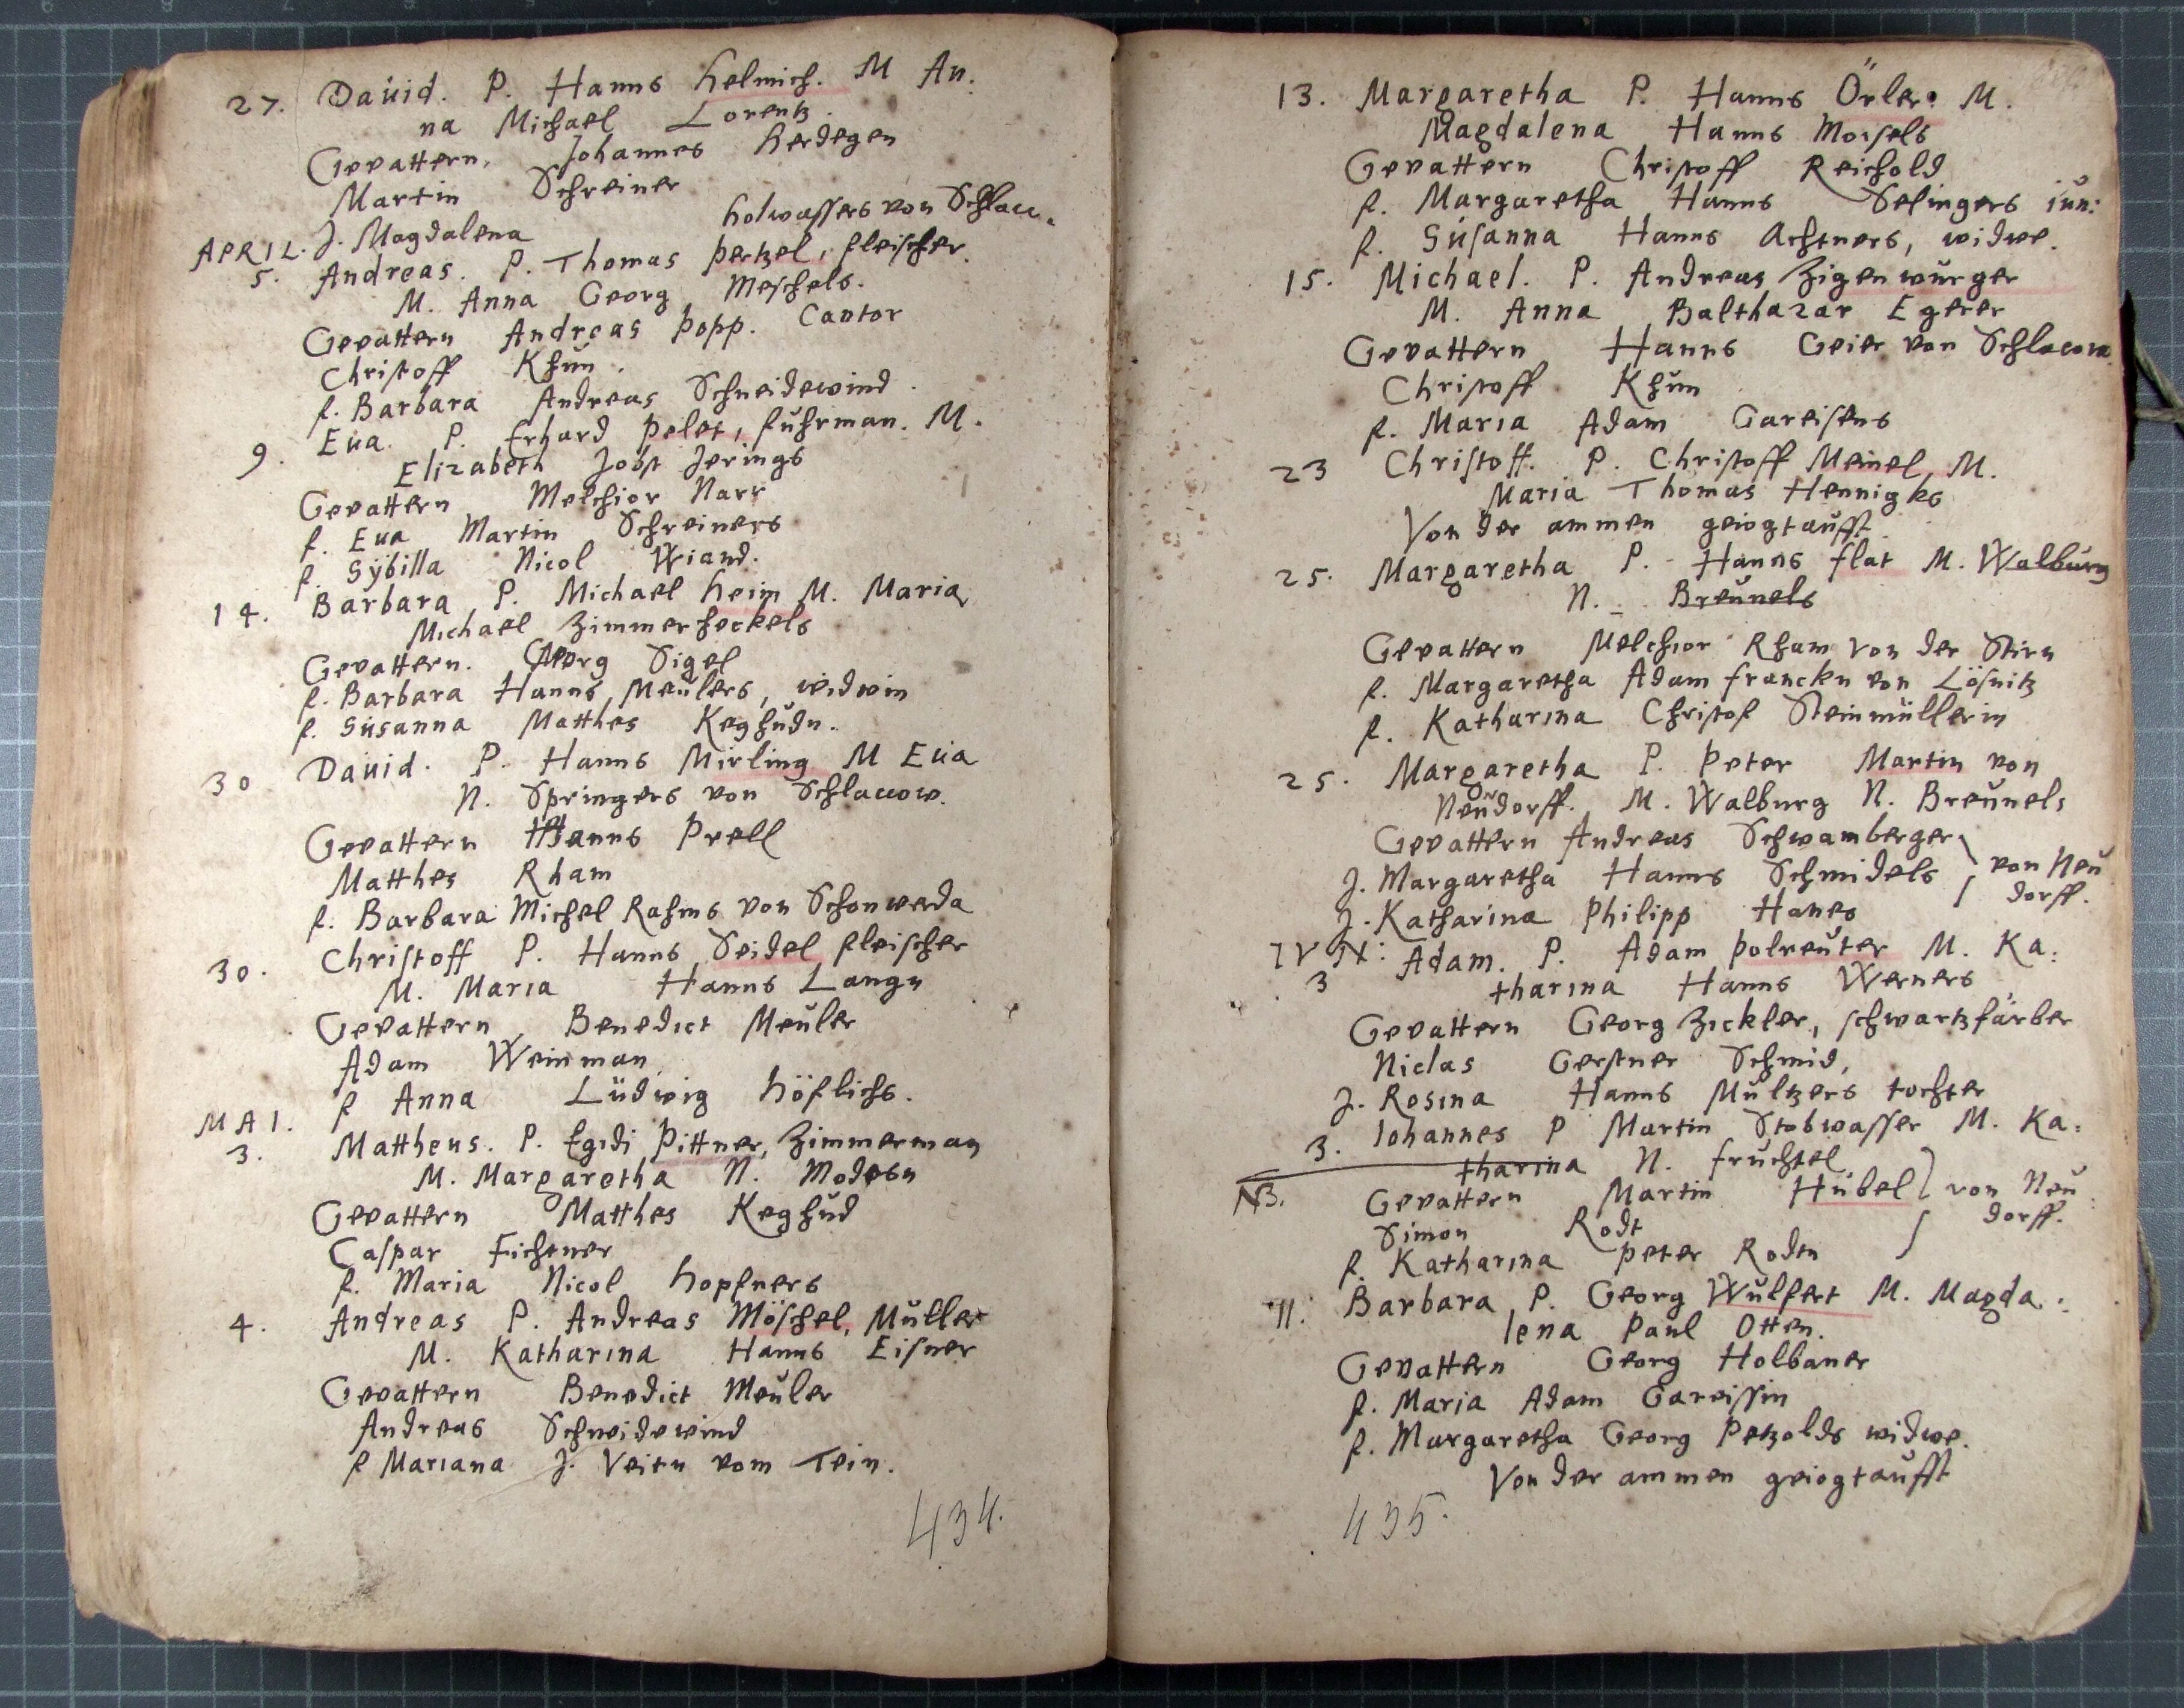 27. Dauid. P. Hanns Helmich. M An:
na Michael Lorentz.
Gevattern, Johannes Herdegen
Martin Schreiner
J. Magdalena Holwassers von Schlacu.
APRIL.
5. Andreas. P. Thomas Pertzel, fleischer.
M. Anna Georg Meschels.
Gevattern Andreas Popp. Cantor
Christoff Khun.
f. Barbara Andreas Schneidewind.
9. Eua. P. Erhard Pelet, fuhrman. M.
Elizabeth Jobst Jerings
Gevattern Melchior Narr
f. Eua Martin Schreiners
f. Sÿbilla Nicol Wiand.
14. Barbara P. Michael Heim M. Maria
Michael Zimmerheckels
Gevattern. Georg Sigel
f. Barbara Hanns Meülers, widwin
f. Süsanna Matthes Keghudn.
30 Dauid. P. Hanns Mirling M Eüa
N. Springers von Schlaccow.
Gevattern Hanns Prell
Matthes Rham
f. Barbara Michel Rahms von Schonwerda
30. Christoff P. Hanns Seidel fleischer
M. Maria Hanns Langn
Gevattern Benedict Meuler
Adam Weinman
f Anna Lüdwig Höflichs.
MAI.
3. Mattheus. P. Egidi Pittner, Zimmerman
M. Margaretha N. Modesn
Gevattern Matthes Keghud
Caspar Eichtner
f. Maria Nicol Hopfners
4. Andreas P. Andreas Möschel, Muller
M. Katharina Hanns Eisner
Gevattern Benedict Meuler
Andreas Schneidewind
f Mariana J. Veitn vom Tein.
434.
13. Margaretha P. Hanns Örler. M.
Magdalena Hanns Moisels
Gevattern Christoff Reichold
f. Margaretha Hanns Selingers iun:
f. Süsanna Hanns Achtners, widwe.
15. Michael. P. Andreas Zigenwurger
M. Anna Balthazar Egerer
Gevattern Hanns Geier von Schlacow
Christoff Khun
f. Maria Adam Gareisens
23 Christoff. P. Christoff Meinel M.
Maria Thomas Hennigks
Von der ammen geiogtaufft
25. Margaretha P. Hanns flat M. Walburg
N. Breünels
Gevattern Melchior Rham von der Stirn
f. Margaretha Adam franckn von Lösnitz
f. Katharina Christof Steinmüllerin
25. Margaretha P. Peter Martin von
Neüdorff. M. Walburg N. Breunels
Gevattern Andreas Schwamberger
J. Margaretha Hanns Schmidels } von Neu
J. Katharina Philipp Hanes dorff.
IVN:
3 Adam. P. Adam Polreuter M. Ka:
tharina Hanns Werners
Gevattern Georg Zickler, schwartzfärber
Niclas Gerstner Schmid,
J. Rosina Hanns Multzers tochter
3. Iohannes P Martin Stobwasser M. Ka:
tharina N. fruchtel
NB. Gevattern Martin Hübel } von Neu
Simon Rodt dorff.
f. Katharina Peter Rodtn
11. Barbara P. Georg Wulfert M. Magda:
lena Paul Otten.
Gevattern Georg Holbaner
f. Maria Adam Gareissin
f. Margaretha Georg Petzolds widwe.
Von der ammen geiogtaufft
435.